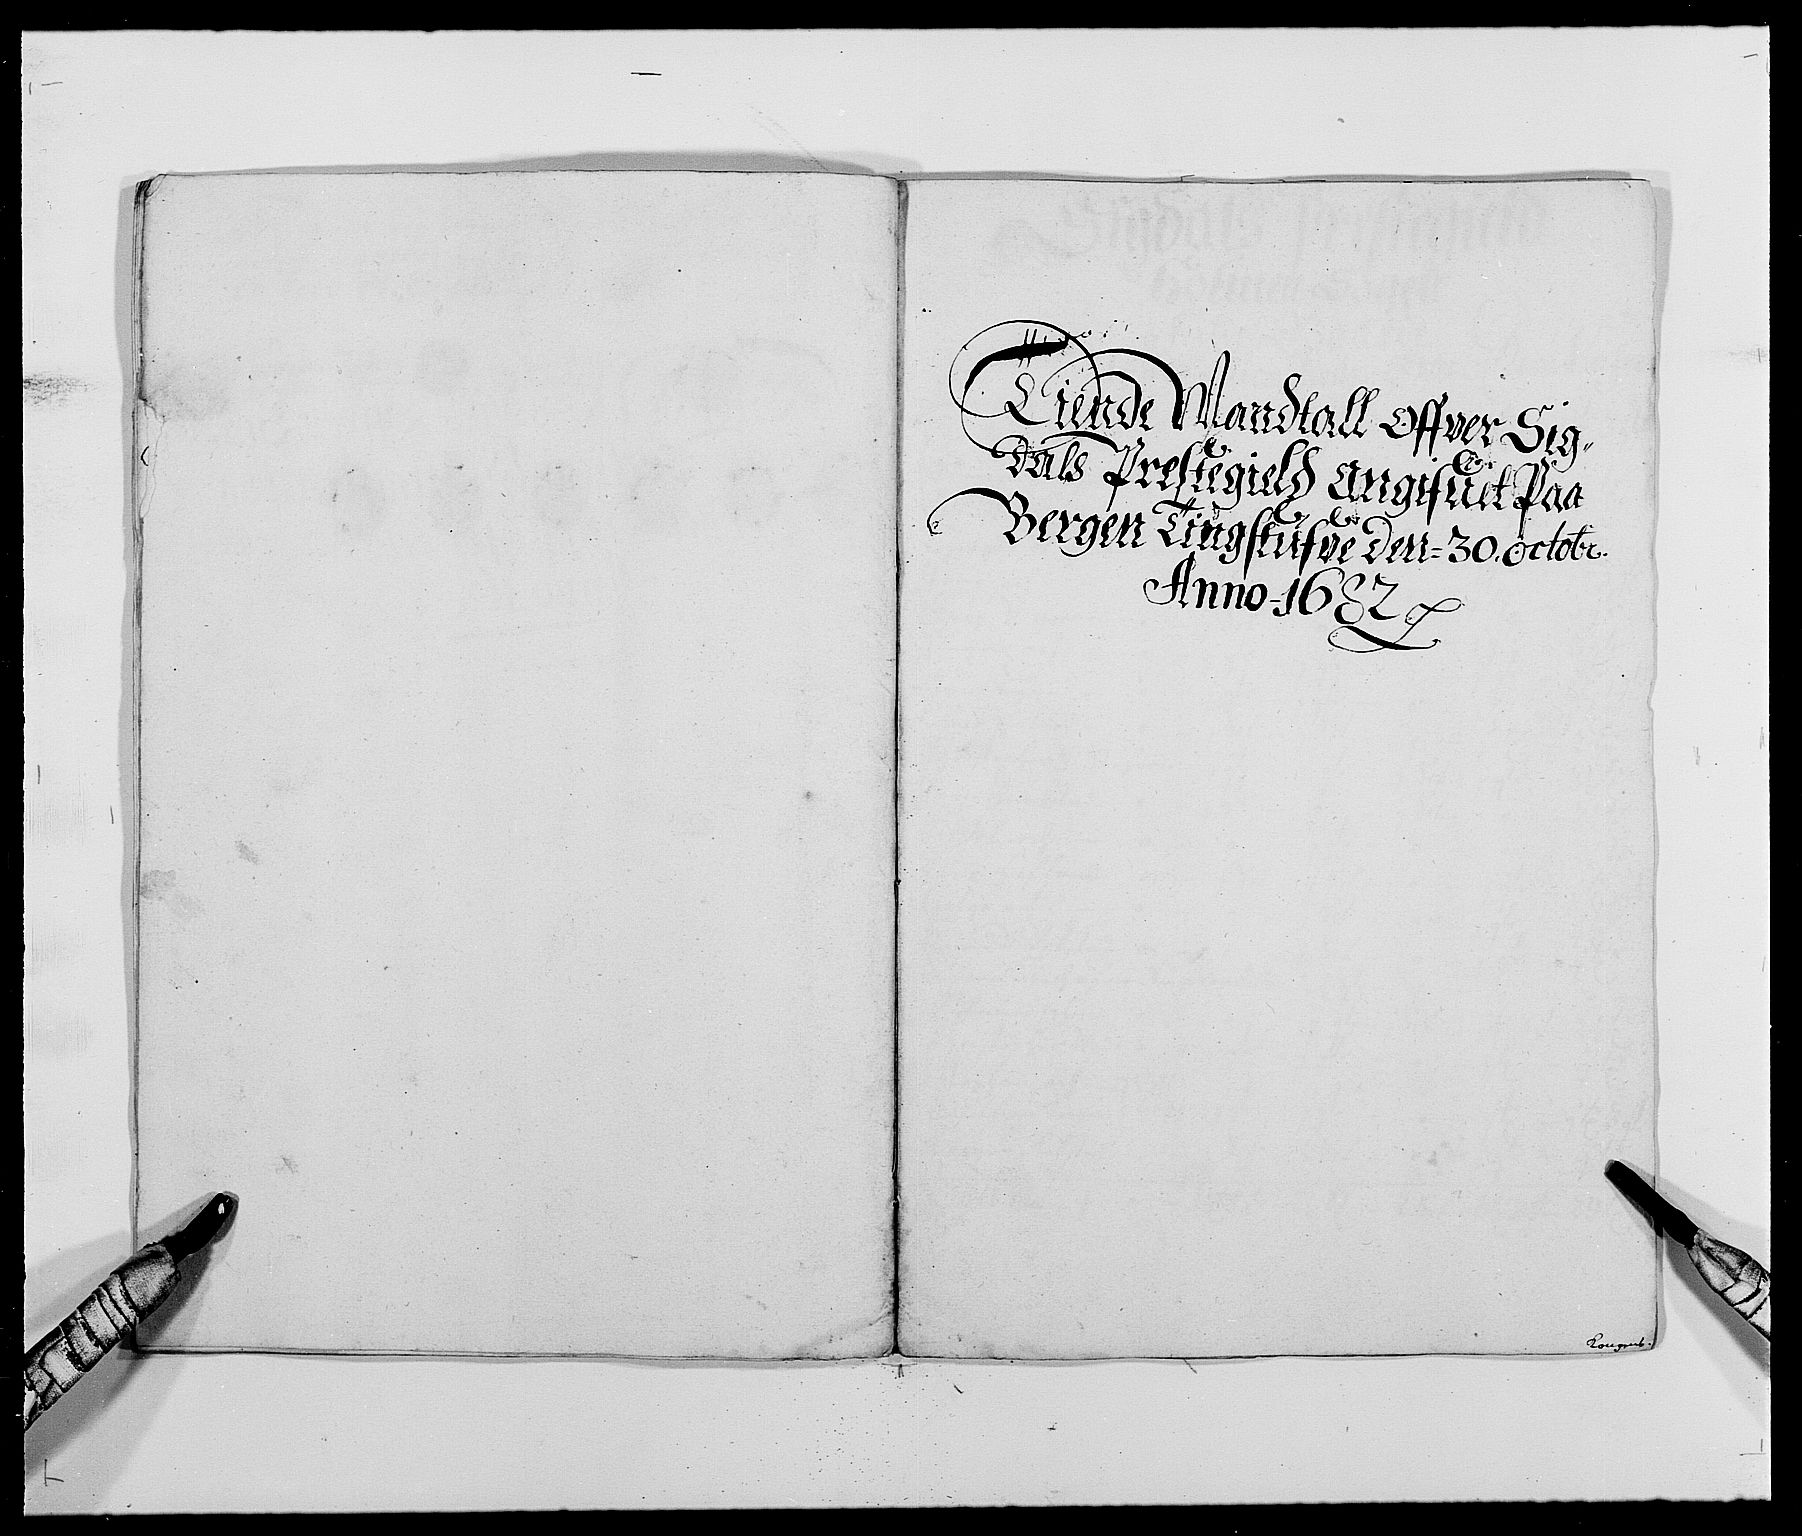 Tiende Mandtall Offver Sig-
dals Prestegield Angifuet Paa
Bergen Tingstufve den= 30. octobr.
Anno=1682